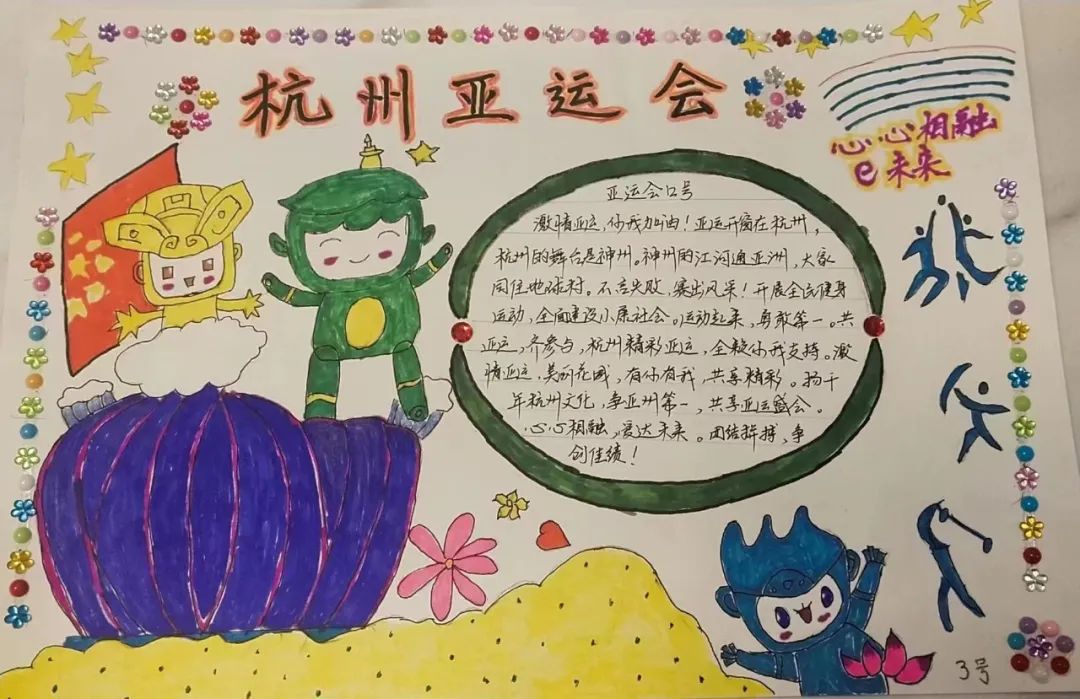 杭州亚运会
心心相融
e未来
亚运会口号
激情亚运，你我加油！亚运开窗在杭州，
杭州的舞台是神州。神州的江河通亚洲，大家
同住地球村。不言失败，赛出风采！开展全民健身
运动，全面建设小康社会。运动起来，勇敢第一。共
亚运，齐参与，杭州精彩亚运，全赖你我支持。激
情亚运，美丽花园，有你有我，共享精彩。扬千
年杭州文化，争亚州第一，共享亚运盛会。
心心相融，爱达未来。团结拼搏，争
创佳绩！
3号